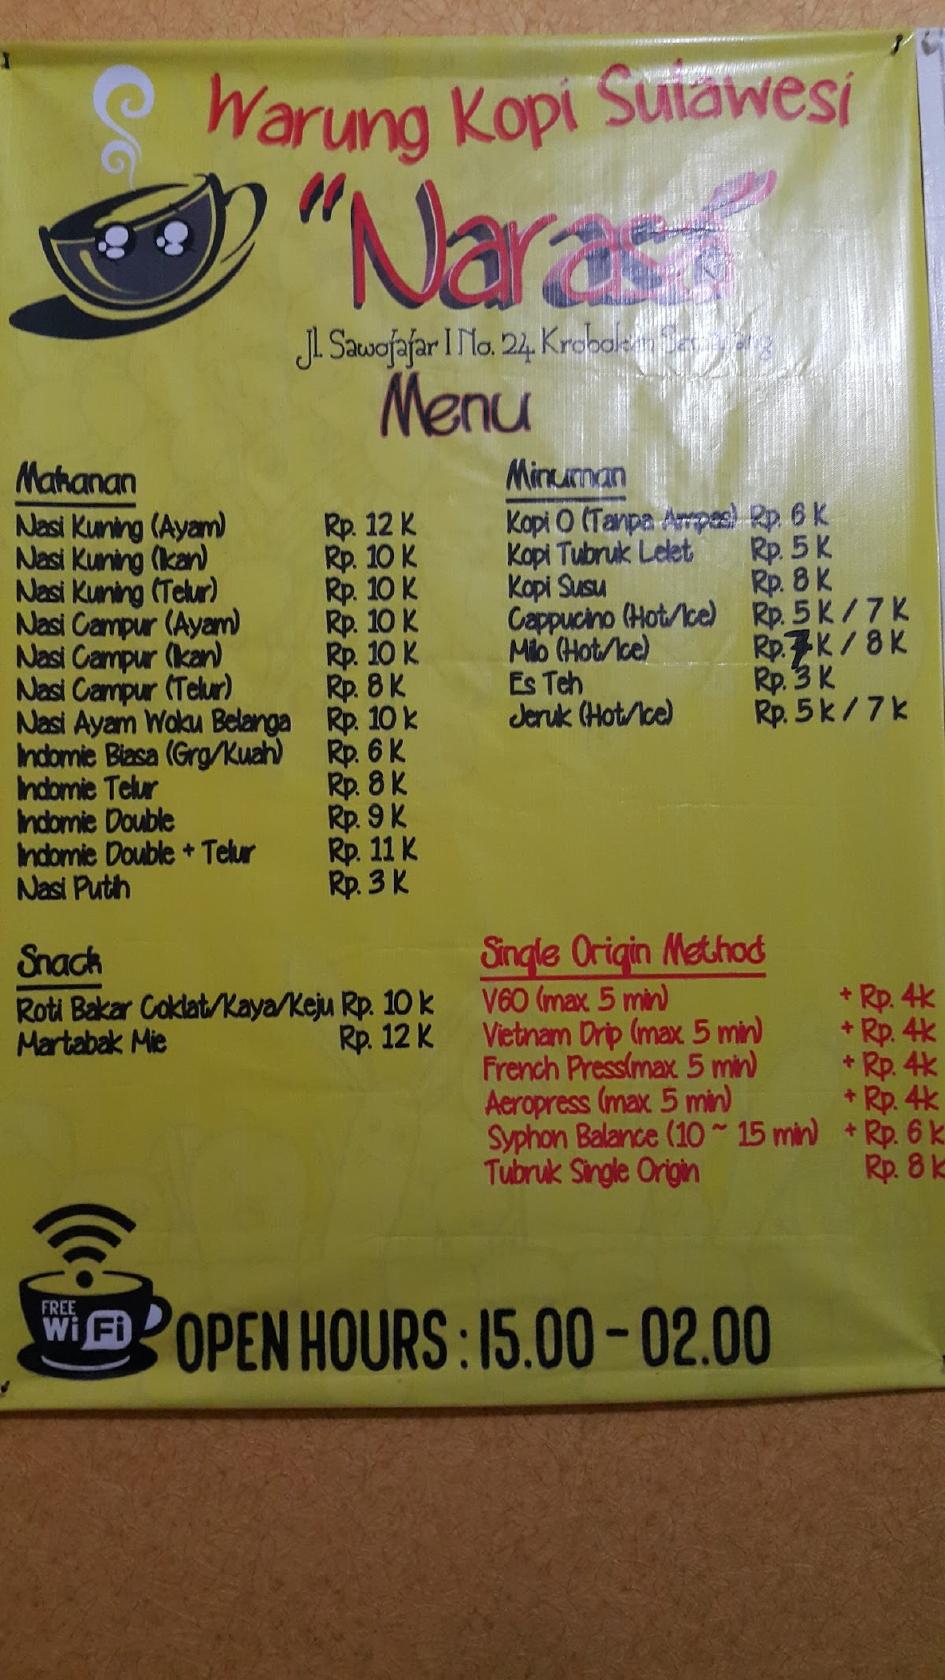 Warung Kopi Sulawesi
"Narasa"
Jl. Sawojajar I No. 24 Krobokan Semarang
Menu
Makanan
Nasi Kuning (Ayam) Rp. 12 K
Nasi Kuning (Ikan) Rp. 10 K
Nasi Kuning (Telur) Rp. 10 K
Nasi Campur (Ayam) Rp. 10 K
Nasi Campur (Ikan) Rp. 10 K
Nasi Campur (Telur) Rp. 8 K
Nasi Ayam Woku Belanga Rp. 10 k
Indomie Biasa (Grg/Kuah) Rp. 6 K
Indomie Telur Rp. 8 K
Indomie Double Rp. 9 K
Indomie Double + Telur Rp. 11 K
Nasi Putih Rp. 3 K
Minuman
Kopi O (Tanpa Ampas) Rp. 6 K
Kopi Tubruk Lelet Rp. 5 K
Kopi Susu Rp. 8 K
Cappucino (Hot/Ice) Rp. 5 K / 7 K
Milo (Hot/Ice) Rp. 7 K / 8 K
Es Teh Rp. 3 K
Jeruk (Hot/Ice) Rp. 5 k / 7 k
Snack
Roti Bakar Coklat/Kaya/Keju Rp. 10 k
Martabak Mie Rp. 12 K
Single Origin Method
V60 (max. 5 min) + Rp. 4k
Vietnam Drip (max. 5 min) + Rp. 4k
French Press(max. 5 min) + Rp. 4k
Aeropress (max. 5 min) + Rp. 4k
Syphon Balance (10 ~ 15 min) + Rp. 6 k
Tubruk Single Origin Rp. 8 k
FREE
Wi Fi
OPEN HOURS : 15.00 - 02.00